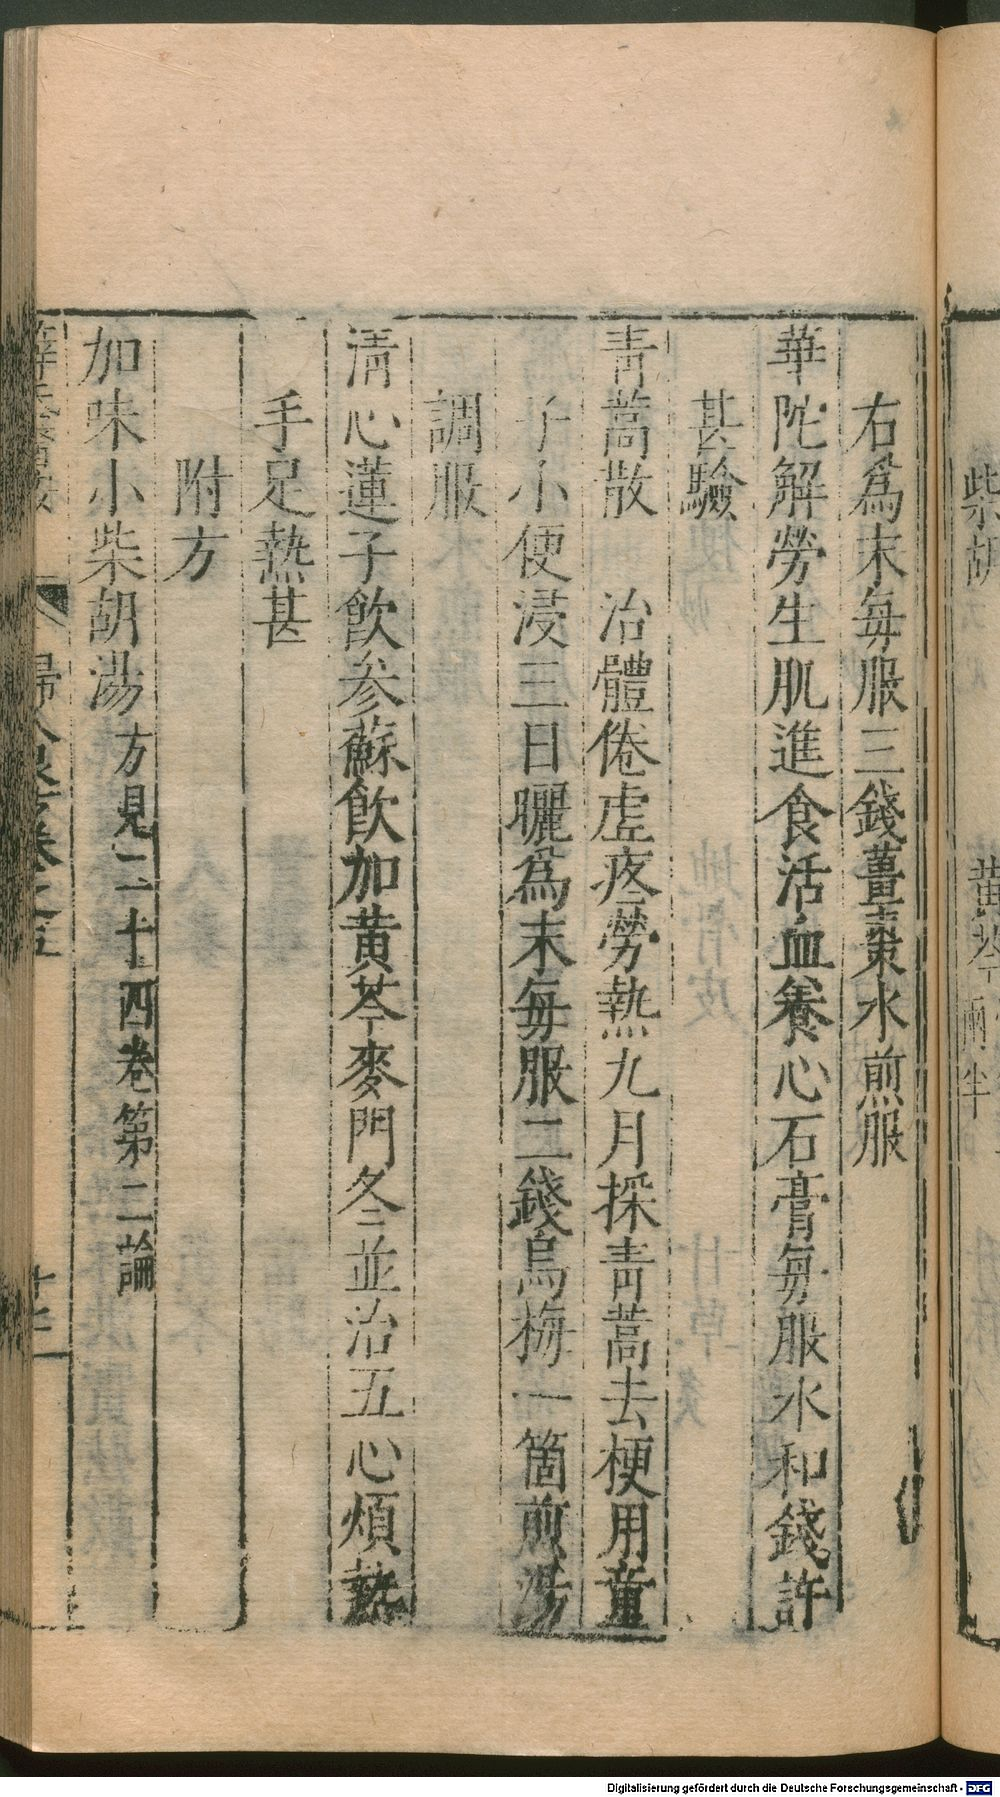 柴胡　黃芩兩半
右爲末每服三錢薑棗水煎服
華陀解勞生肌進食活血養心石膏每服水和錢許
甚驗
青蒿散　治體倦虛疼勞熱九月採青蒿去梗用童
子小便浸三日曬爲末每服二錢烏梅一箇煎湯
調服
清心蓮子飲參蘇飲加黃芩麥門冬並治五心煩熱
手足熱甚
附方
加味小柴胡湯方見二十四卷第二論
婦人良方卷之五
Digitalisierung gefördert durch die Deutsche Forschungsgemeinschaft - DFG